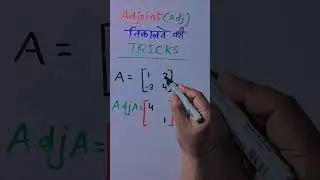 Adjoint(Adj)
निकालने की
TRICKS
A = [1 2
-3 4]
AdjA= [4
1